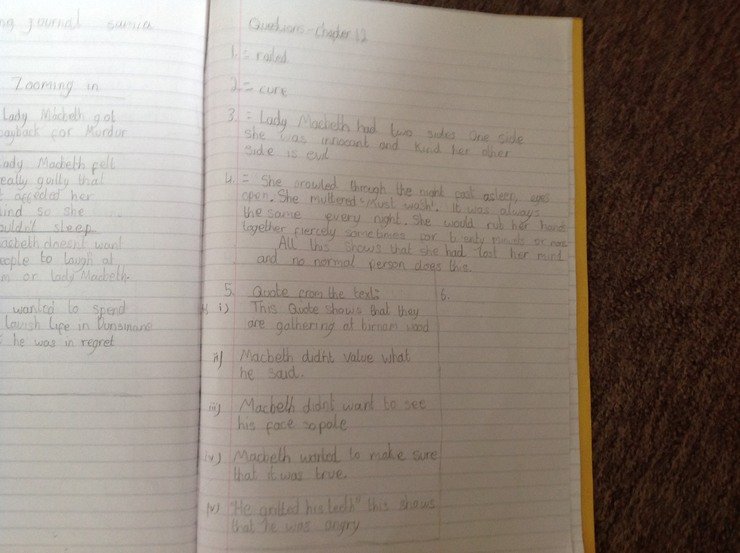 ng journal
Zooming in
Lady Macbeth got
ayback for Murdur
ady Macbeth felt
eally guilty that
t affeded her
ind so she
ouldn't sleep.
acbeth doesnt want
eople to laugh at
m or lady Macbeth.
wanted to spend
Lavish life in Dunsinane
he was in regret
Questions - Chapter 12
1. = railed
2. = cure
3. = Lady Macbeth had two sides One side
she was innocent and kind her other
side is evil
4. = She prowled through the night cast asleep, eyes
open. She muttered "Must wash". It was always
the same every night. She would rub her hands
together fiercely sometimes for twenty minuets or more
All this shows that she had lost her mind
and no normal person does this.
5. Quote from the text: 6.
i) This Quote shows that they
are gathering at birnam wood
ii) Macbeth didnt value what
he said.
iii) Macbeth didnt want to see
his face so pale
iv) Macbeth wanted to make sure
that it was true.
v) "He gritted his teeth" this shows
that he was angry